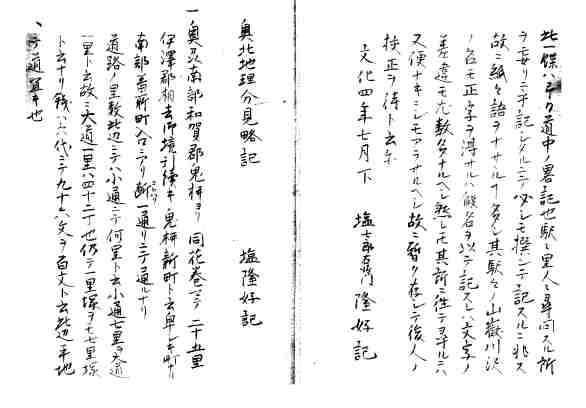 此一條ハミク道中ノ畧記也駅々里人ニ尋問スル所
ヲ妄リニ手記シタルニテ必シモ撰ンテ記スルニ非ス
故ニ紙々語ヲナサル丁多シ其駅々ノ山嶽川沢
ノ名モ正字ヲ得サルハ假名ヲ以テ記スレハ文字ノ
差違モ尤数多ナルヘシ然レモ其所ニ徃テヲキルニハ
又便ナキニシモアラサルヘシ故ニ暫ク存シテ後人ノ
校正ヲ待ト云尓
文化四年七月下 塩 隆好記
奥北地理分見略記 塩隆好記
一奥刕南部和賀郡鬼栁ヨリ同花巻マテ二十五里
伊澤郡相去御境引続キ鬼栁新町ト云卑シキ町ナリ
南部 前町入口ニアリ断一通リニテ通ルナリ
道路ノ里数此辺ニテハ小通ニテ何里ト云小通七里ヲ大道
一里ト云故ニ大道一里ハ四十二丁也仍テ一里塚ヲモ七里塚
ト云ナリ銭ハ六代ニテ九十六文ヲ百文ト云此辺平地
ニテ道宜キ也